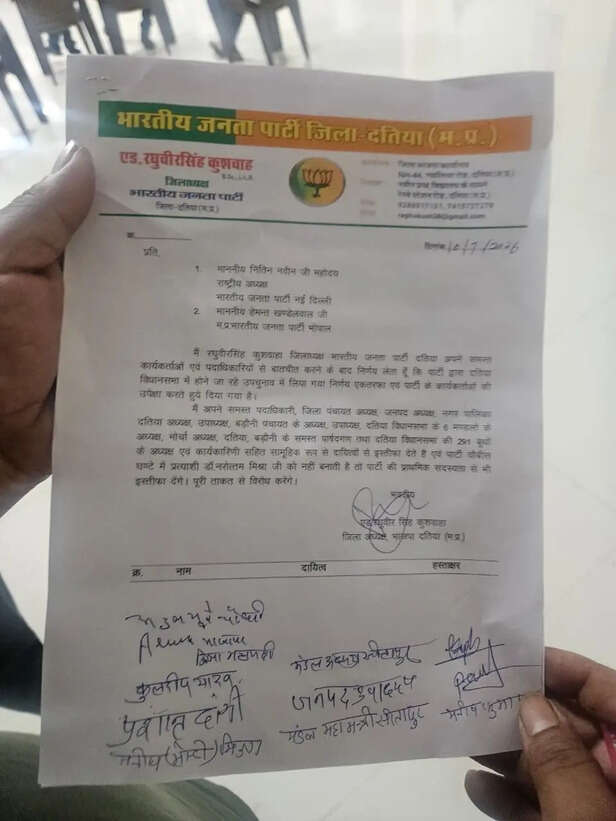 भारतीय जनता पार्टी जिला-दतिया (म.प्र.)
एड. रघुवीरसिंह कुशवाह
B.Sc., L.L.B.
जिलाध्यक्ष
भारतीय जनता पार्टी
जिला-दतिया (म.प्र.)
जिला भाजपा कार्यालय
रेल्वे स्टेशन रोड, दतिया (म.प्र.)
क्र.
दिनांक 10/7/2026
प्रति,
1. माननीय नितिन नवीन जी महोदय
राष्ट्रीय अध्यक्ष
भारतीय जनता पार्टी नई दिल्ली
2. माननीय हेमन्त खण्डेलवाल जी
म.प्र.भारतीय जनता पार्टी भोपाल
मैं रघुवीरसिंह कुशवाहा जिलाध्यक्ष भारतीय जनता पार्टी दतिया अपने समस्त
कार्यकर्ताओं एवं पदाधिकारियों से बातचीत करने के बाद निर्णय लेता हूँ कि पार्टी द्वारा दतिया
विधानसभा में होने जा रहे उपचुनाव में लिया गया निर्णय एकतरफा एवं पार्टी के कार्यकर्ताओं की
उपेक्षा करते हुये दिया गया है।
मैं अपने समस्त पदाधिकारी, जिला पंचायत अध्यक्ष, जनपद अध्यक्ष, नगर पालिका
दतिया अध्यक्ष, उपाध्यक्ष, बड़ौनी पंचायत के अध्यक्ष, उपाध्यक्ष, दतिया विधानसभा के 6 मण्डलो के
अध्यक्ष, मोर्चा अध्यक्ष, दतिया, बड़ौनी के समस्त पार्षदगण तथा दतिया विधानसभा की 291 बूथों
के अध्यक्ष एवं कार्यकारिणी सहित सामूहिक रूप से दायित्वों से इस्तीफा देते है एवं पार्टी चौबीस
घण्टे में प्रत्याशी डॉ.नरोत्तम मिश्रा जी को नहीं बनाती है तो पार्टी की प्राथमिक सदस्यता से भी
इस्तीफा देंगे। पूरी ताकत से विरोध करेंगे।
भवदीय
एड.रघुवीर सिंह कुशवाहा
जिला अध्यक्ष, भाजपा दतिया (म.प्र.)
क्र. नाम दायित्व हस्ताक्षर
कुलदीप यादव
जनपद
प्रशांत दांगी
मंडल महामन्त्री सीतापुर